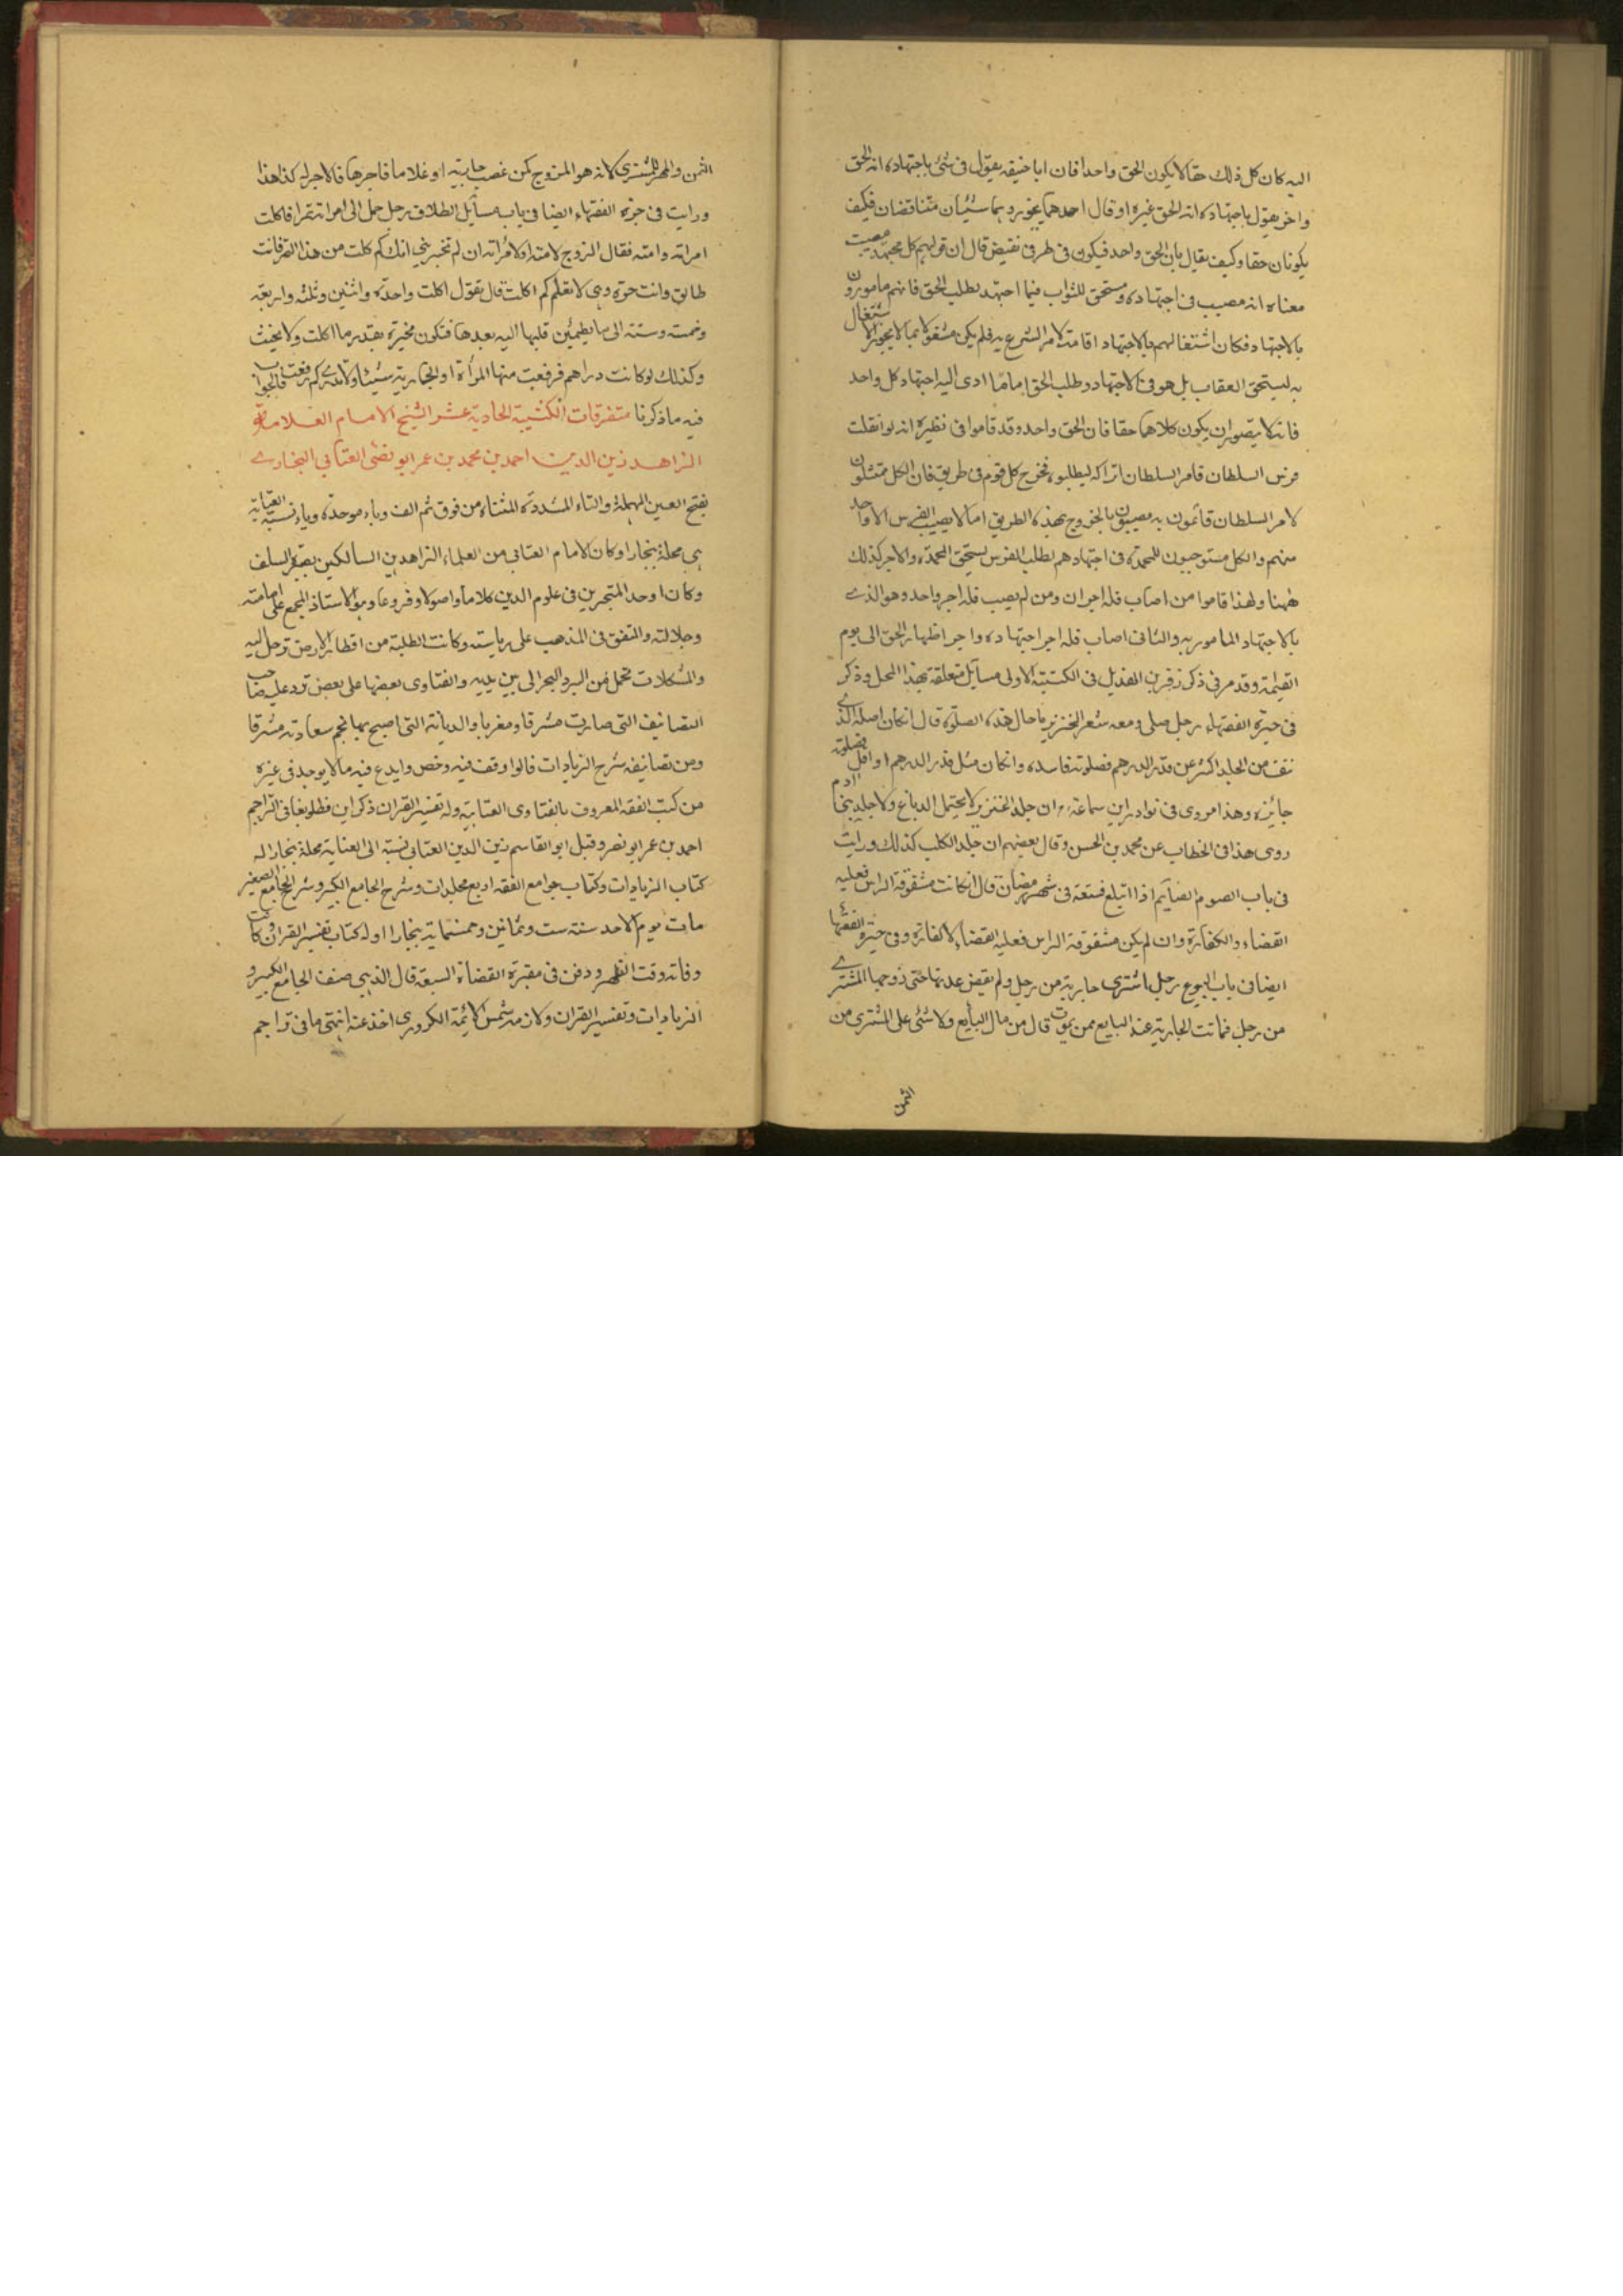 اليه كان كل ذلك حقا لا يكون الحق واحدا فان ابا حنيفه يقول فى شئ باجتهاده انه الحق
واخر يقول باجتهاده انه الحق غيره او قال احدهما يجوز وهما شيئان متناقضان فكيف
يكونان حقا وكيف يقال بان الحق واحد فيكون فى طرفى نقيض قال ان قولهم كل مجتهد مصيب
معناه انه مصيب فى اجتهاده ومستحق للثواب فيما اجتهد بطلب الحق فانهم مامورون
بالاجتهاد فكان اشتغالهم بالاجتهاد اقامة لامر الشرع به فلم يكن مشغولا بما لا يجوز الاشتغال
به ليستحق العقاب بل هو فى الاجتهاد وطلب الحق اما ما ادى اليه اجتهاد كل واحد
فانه لا يتصور ان يكون كلاهما حقا فان الحق واحد وقد قاموا فى نظيره انه لو انفلت
فرس السلطان فامر السلطان اتراكه ليطلبوه فخرج كل قوم فى طريق فان الكل ممتثلون
لامر السلطان قائمون به مصيبون بالخروج بهذه الطريق اما لا يصيب الفرس الا واحد
منهم والكل مستوجبون للمحمدة فى اجتهادهم بطلب الفرس يستحق المحمدة والاجر كذلك
ههنا ولهذا قاموا من اصاب فله اجران ومن لم يصب فله اجر واحد وهو الذى
بالاجتهاد المامور به والثانى اصاب فله اجر اجتهاده واجر اظهار الحق الى يوم
القيمة وقد مر فى ذكر زفر بن الهذيل فى الكتيبة الاولى مسايل متعلقة بهذا المحل وذكر
فى حيرة الفقهاء رجل صلى ومعه شعر الخنزير ما حال هذه الصلوة قال ان كان اصله الذى
نتف من الجلد اكثر عن قدر الدرهم فصلوته فاسده وان كان مثل قدر الدرهم او اقل فصلوته
جائزه وهذا مروى فى نوادر ابن سماعة ان جلد الخنزير لا يحتمل الدباغ ولا جلد بنى ادم
روى هذا فى الخطاب عن محمد بن الحسن وقال بعضهم ان جلد الكلب كذلك ورايت
فى باب الصوم الصايم اذا ابتلع فستقة فى شهر رمضان قال ان كانت مشقوقة الراس فعليه
القضاء والكفارة وان لم يكن مشقوقة الراس فعليه القضاء لا كفارة وفى حيرة الفقهاء
ايضا فى باب البيوع رجل اشترى جارية من رجل ولم يقبض عدتها حتى زوجها المشترى
من رجل فماتت الجارية عند البايع ممن يموت قال من مال البايع ولا شئ على المشترى من
الثمن
الثمن والمهر للمشترى لانه هو المزوج كمن غصب جارية او غلاما فاجرها فالاجر له كذا هذا
ورايت فى حيرة الفقهاء ايضا فى باب مسايل الطلاق رجل حمل الى امراته تمرا فاكلت
امراته وامته فقال الزوج لامته او لامراته ان لم تخبرينى انك كم اكلت من هذا التمر فانت
طالق وانت حرة وهى لا تعلم كم اكلت قال تقول اكلت واحدة واثنين وثلثه واربعة
وخمسة وستة الى ما يطمئن قلبها اليه بعدها فتكون مخيرة بقدر ما اكلت ولا يحنث
وكذلك لو كانت دراهم فرفعت منها المراة او الجارية شيئا ولا تدرى كم رفعت فالجواب
فيه ما ذكرنا متفرقات الكتيبة الحادية عشر الشيخ الامام العلامة
الزاهد زين الدين احمد بن محمد بن عمر ابو نصر العتابى البخارى
بفتح العين المهملة والتاء المشددة المثناة من فوق ثم الف وباء موحدة وياء نسبة العتابية
هى محلة ببخارا وكان الامام العتابى من العلماء الزاهدين السالكين بقية السلف
وكان اوحد المتبحرين فى علوم الدين كلاما واصولا وفروعا وهو الاستاذ المجمع على امامته
وجلالته والتفق فى المذهب على رياسته وكانت الطلبة من اقطار الارض ترحل اليه
والمشكلات تحمل من البر والبحر الى بين يديه والفتاوى بعضها على بعض ترد عليه صاحب
التصانيف التى صارت مشرقا ومغربا والديانة التى اصبح بها نجم سعادته مشرقا
ومن تصانيفه شرح الزيادات قالوا وقف فيه وخص وابدع فيه ما لا يوجد فى غيره
من كتب الفقه المعروف بالفتاوى العتابية وله تفسير القران ذكر ابن قطلوبغا فى التراجم
احمد بن عمر ابو نصر وقيل ابو القاسم زين الدين العتابى نسبة الى العتابة محلة ببخارا له
كتاب الزيادات وكتاب جوامع الفقه اربع مجلدات وشرح الجامع الكبير وشرح الجامع الصغير
مات يوم الاحد سنة ست وثمانين وخمسمايه ببخارا اوله كتاب تفسير القران وكانت
وفاته وقت الظهر ودفن فى مقبرة القضاة السبعة قال الذهبى صنف الجامع الكبير و
الزيادات وتفسير القران ولازمه شمس الائمة الكردرى اخذ عنه انتهى ما فى تراجم